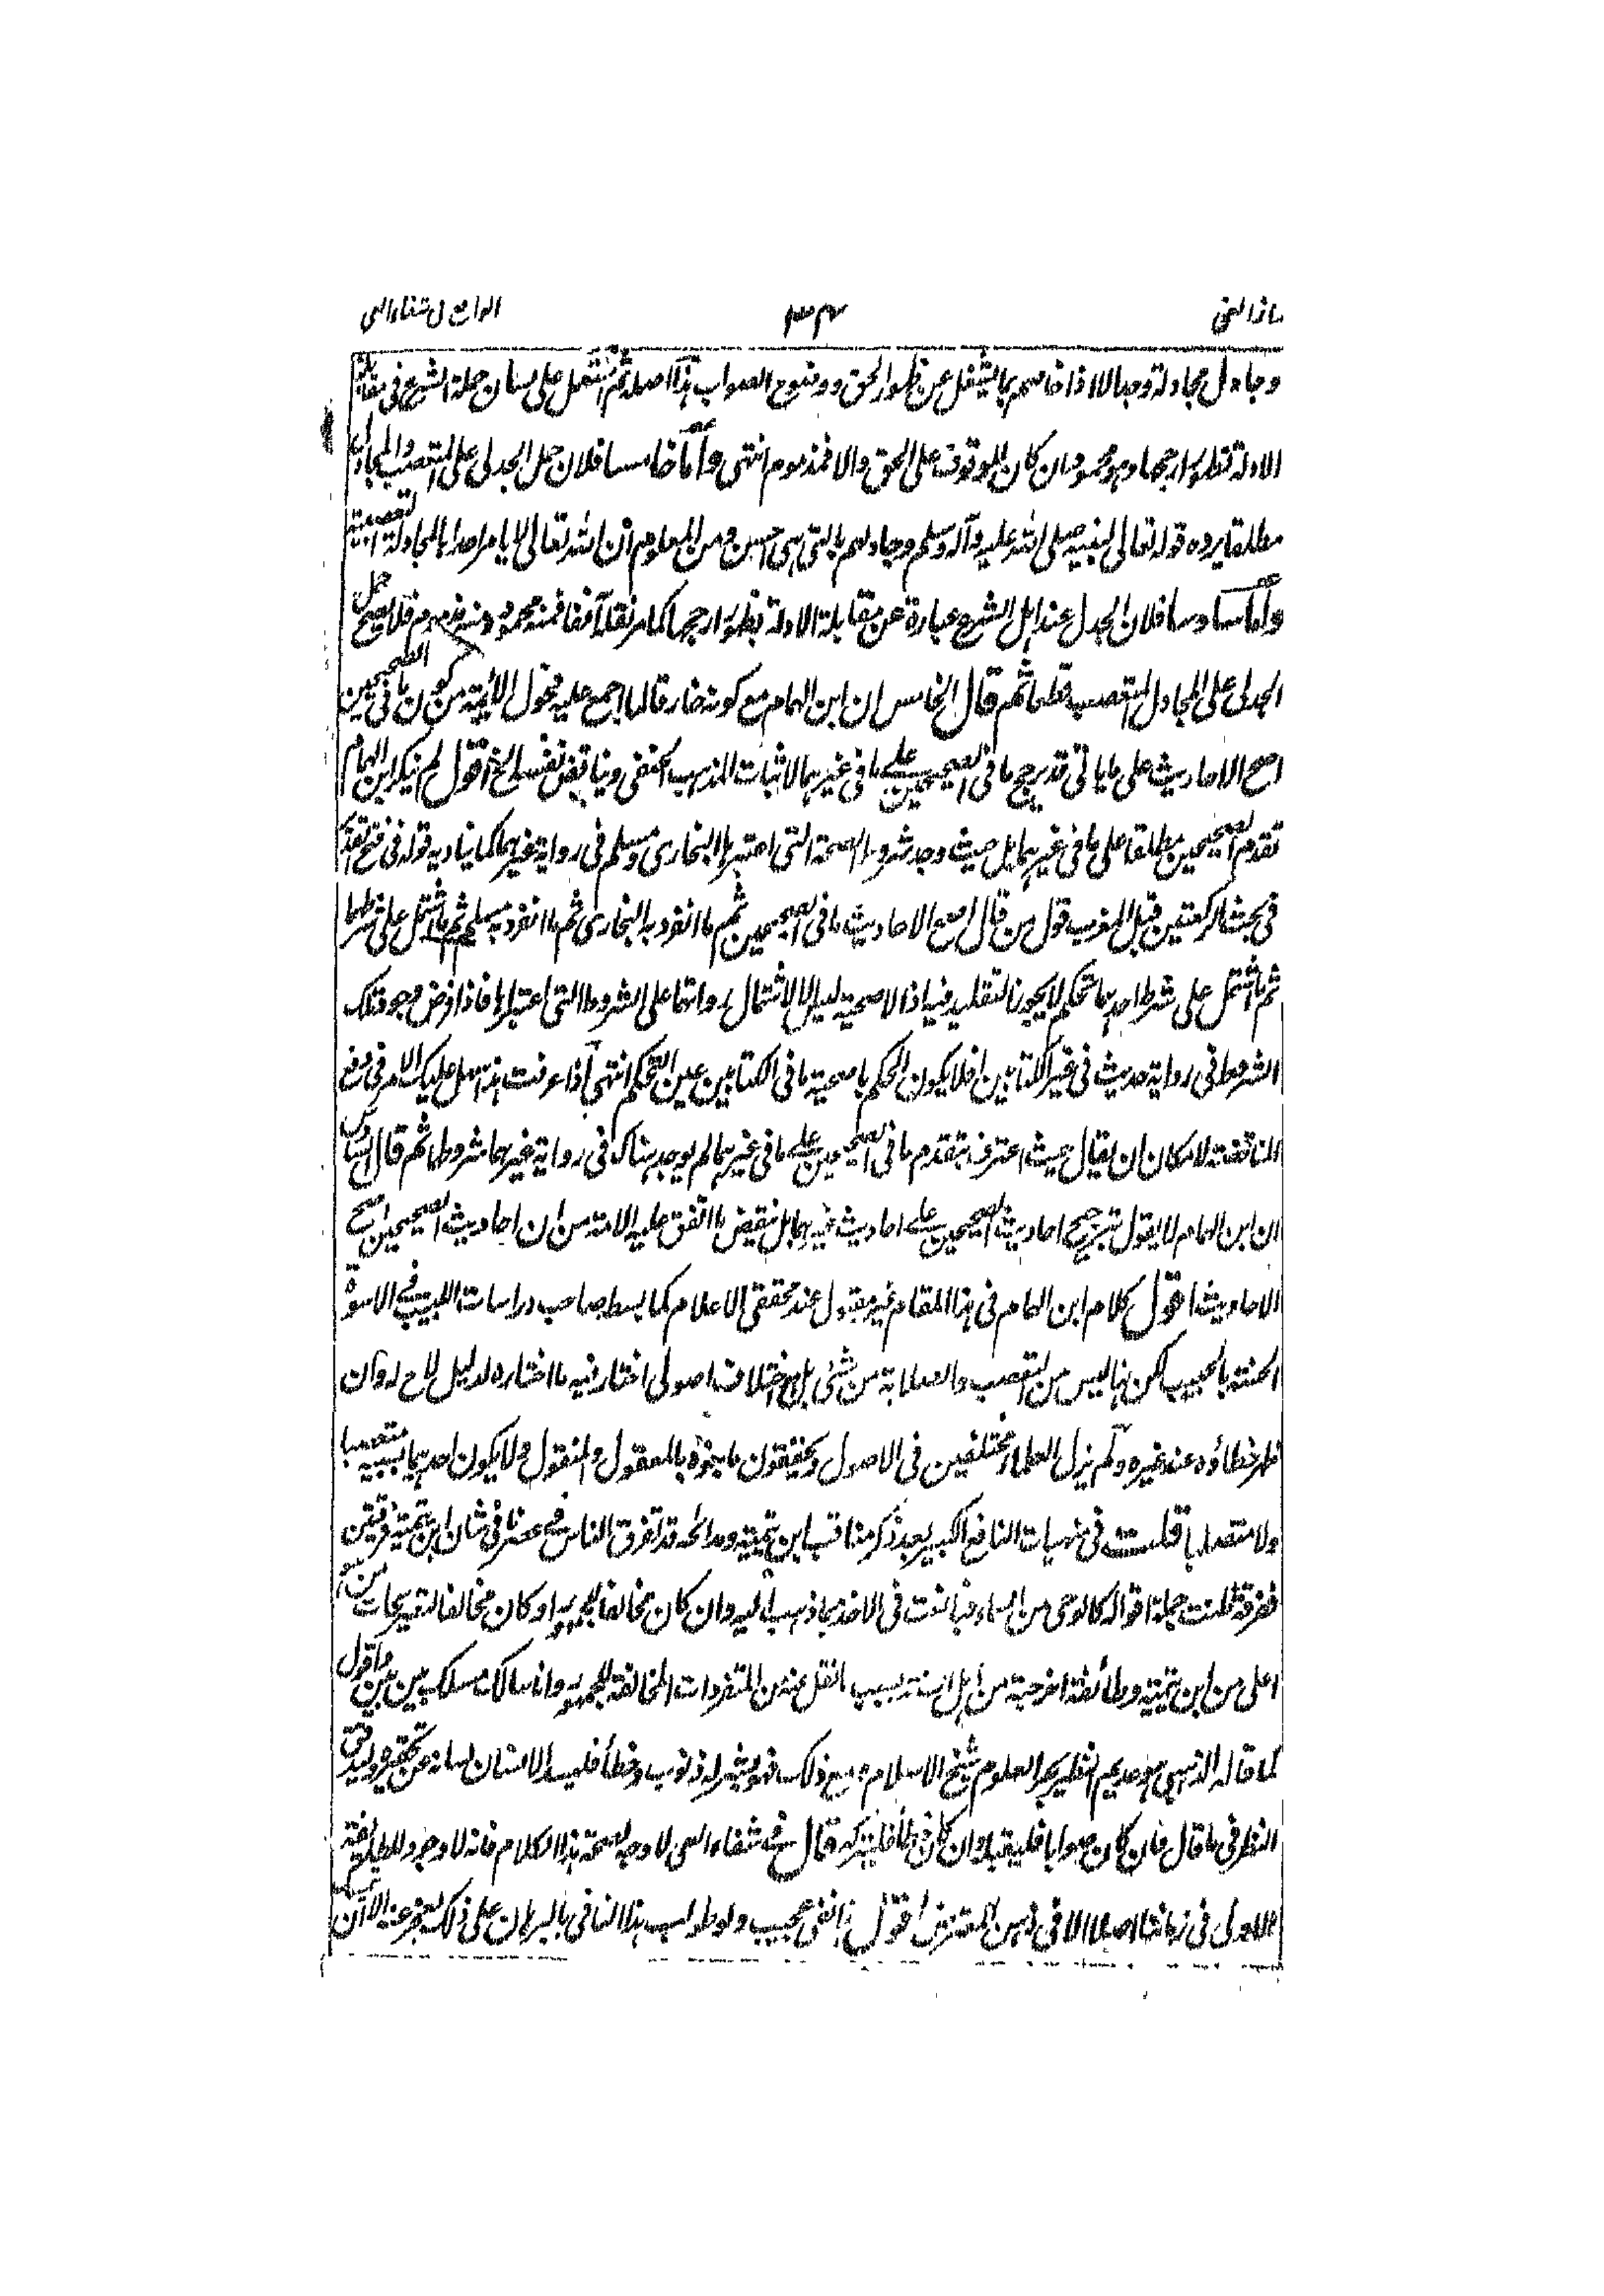 ابراز الغی ٣٤ الواقع فی شفاء العی
وجادل مجادلة وجدالا اذا خاصم بما يشغل عن ظهور الحق ووضوح الصواب هذا اصله ثم استعمل على لسان حملة الشرع فى مقابلة
الادلة لظهور ارجحها وهو محمود ان كان للوقوف على الحق والا فمذموم انتهى واما خامسا فلان حمل الجدلى على المتعصب والمجادل
مطلقا يرده قوله تعالى لنبيه صلى الله عليه وآله وسلم وجادلهم بالتى هى احسن ومن المعلوم ان الله تعالى لا يامر احدا بالمجادلة التعصبية
واما سادسا فلان الجدل عند اهل الشرع عبارة عن مقابلة الادلة لظهور ارجحها كما مر نقله آنفا فمنه محمود ومنه مذموم فلا يصح حمل
الجدلى على المجادل المتعصب قطعا ثم قال الخامس ان ابن الهمام مع كونه خارقا لما اجمع عليه فحول الائمة من كون ما فى الصحيحين
اصح الاحاديث على ما ياتى قد يرجح ما فى الصحيحين على ما فى غيرهما لاثبات المذهب الحنفى ويناقض نفسه الخ اقول لم ينكر ابن الهمام
تقدم الصحيحين مطلقا على ما فى غيرهما بل حيث وجد شروط الصحة التى اعتبرها البخارى ومسلم فى رواية غيرهما كما يناديه قوله فى فتح القدير
فى بحث الركعتين قبل المغرب قول من قال اصح الاحاديث ما فى الصحيحين ثم ما انفرد به البخارى ثم ما انفرد به مسلم ثم ما اشتمل على شرطهما
ثم ما اشتمل على شرط احدهما تحكم لا يجوز التقليد فيه اذ الاصحية ليس الا لاشتمال رواتهما على الشروط التى اعتبراها فاذا فرض وجود تلك
الشروط فى رواية حديث فى غير الكتابين افلا يكون الحكم باصحية ما فى الكتابين عين التحكم انتهى اذا عرفت هذا سهل عليك الامر فى دفع
المناقضة لامكان ان يقال حيث اعترف بتقدم ما فى الصحيحين على ما فى غيرهما لم يوجد هناك فى رواية غيرهما شروطهما ثم قال السادس
ان ابن الهمام لا يقول بترجيح احاديث الصحيحين على احاديث غيرهما بل نقيض ما اتفق عليه الامة من ان احاديث الصحيحين اصح
الاحاديث اقول كلام ابن الهمام فى هذا المقام غير مقبول عند محققى الاعلام كما بسطه صاحب دراسات اللبيب فى الاسوة
الحسنة بالحبيب لكن هذا ليس من التعصب والصلابة من شئ بل هو اختلاف اصولى اختار فيه ما اختاره لدليل لاح له وان
ظهر خطأؤه عند غيره ولم يزل العلماء مختلفين فى الاصول ويحققون ما بنوه بالمعقول والمنقول ولا يكون احدهما بسببه متعصبا
ولا متصلبا قلت فى منهيات النافع الكبير بعد ذكر مناقب ابن تيمية ومدائحه قد تفرق الناس فى عصرنا فى شان ابن تيمية فرقتين
ففرقة ظنت جملة اقواله كالوحى من السماء فبالغت فى الاخذ بما ذهب اليه وان كان مخالفا للجمهور او كان مخالفا لتصريحات من هو
اعلى من ابن تيمية وطائفة اخرجته من اهل السنة بسبب ما نقل عنه من المتفردات المخالفة للجمهور وانا سالك مسلك بين بين واقول
كما قاله الذهبى هو عديم النظير بحر العلوم شيخ الاسلام ومع ذلك فهو بشر له ذنوب وخطأ فليمسك الانسان لسانه عن تحقيره وليدقق
النظر فى ما قال فان كان صوابا فليقبله وان كان خطأ فليتركه قال فى شفاء العى لا وجه لصحة هذا الكلام فانه لا وجود للطائفة
الاولى فى زماننا اصلا الا فى ذهن المعترض اقول هذا نفى عجيب ولو طولب هذا النافى بالبرهان على ذلك لعجز عنه الا ان